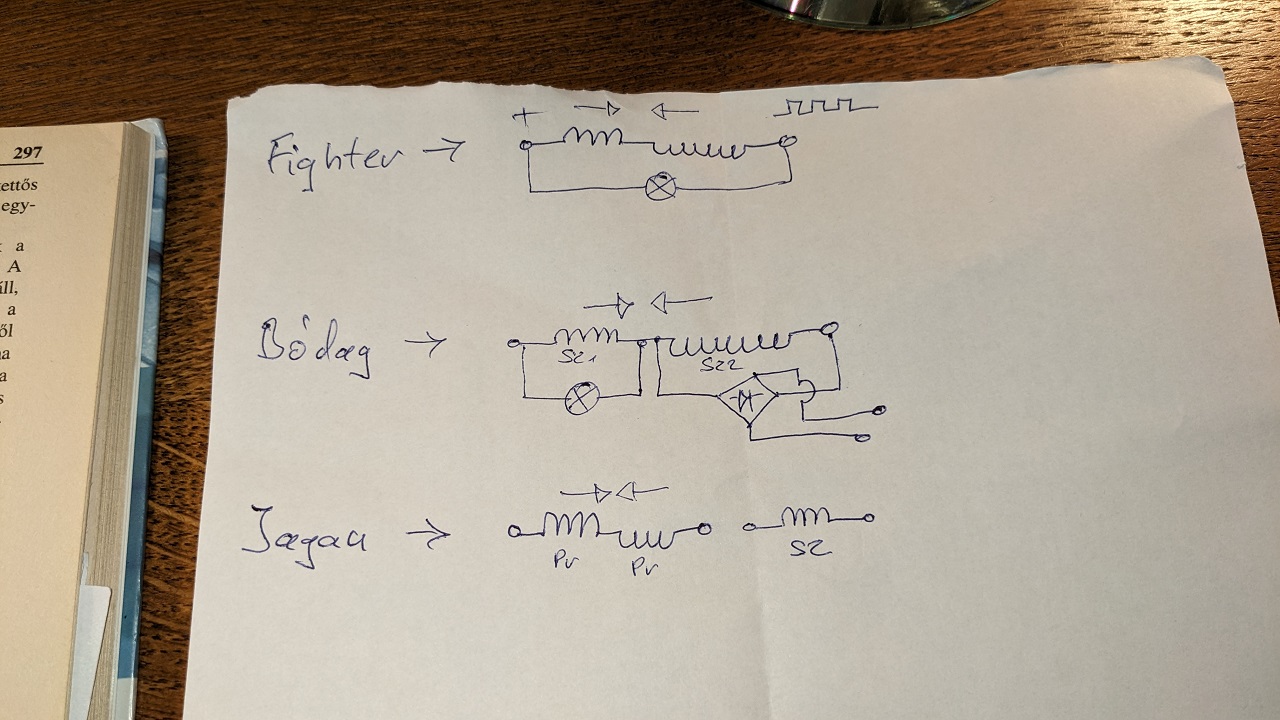 297
ettős
egy-
a
A
áll,
a
ől
a
a
s
Fighter →
+
Bódag →
SZ1
SZ2
Jagau →
Pr
Pr
SZ